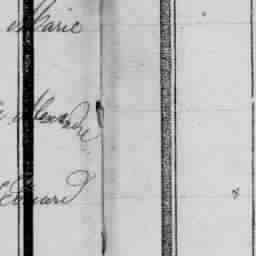 Marie
Alexandre
Edouard 8